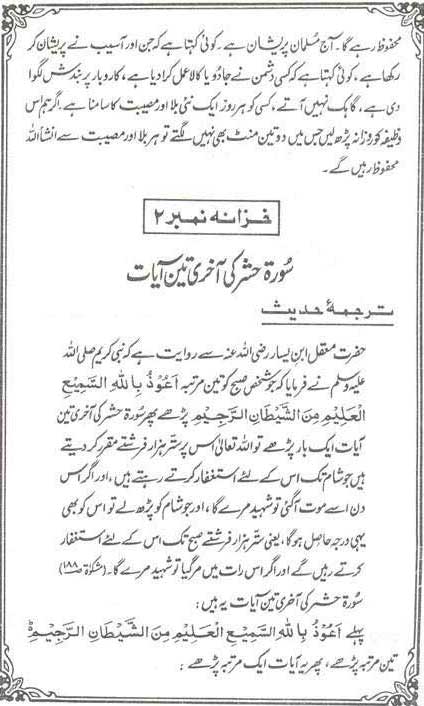 محفوظ رہے گا۔ آج مسلمان پریشان ہے۔ کوئی کہتا ہے کہ جن اور آسیب نے پریشان کر
رکھا ہے، کوئی کہتا ہے کہ کسی دشمن نے جادو یا کالا عمل کرا دیا ہے، کاروبار پر بندش لگوا
دی ہے، گاہک نہیں آتے، کسی کو ہر روز ایک نئی بلا اور مصیبت کا سامنا ہے۔ اگر ہم اس
وظیفہ کو روزانہ پڑھ لیں جس میں دو تین منٹ بھی نہیں لگتے تو ہر بلا اور مصیبت سے انشاءاللہ
محفوظ رہیں گے۔
خزانہ نمبر ۲
سُورۃ حشر کی آخری تین آیات
ترجمۂ حدیث
حضرت معقل ابن یسار رضی اللہ عنہ سے روایت ہے کہ نبی کریم صلی اللہ
علیہ وسلم نے فرمایا کہ جو شخص صبح کو تین مرتبہ اَعُوْذُ بِاللّٰہِ السَّمِیْعِ
الْعَلِیْمِ مِنَ الشَّیْطَانِ الرَّجِیْمِ پڑھے پھر سُورۃ حشر کی آخری تین
آیات ایک بار پڑھے تو اللہ تعالیٰ اس پر ستّر ہزار فرشتے مقرر کر دیتے
ہیں جو شام تک اس کے لئے استغفار کرتے رہتے ہیں، اور اگر اس
دن اسے موت آ گئی تو شہید مرے گا، اور جو شام کو پڑھ لے تو اس کو بھی
یہی درجہ حاصل ہوگا، یعنی ستّر ہزار فرشتے صبح تک اس کے لئے استغفار
کرتے رہیں گے اور اگر اس رات میں مر گیا تو شہید مرے گا۔ (مشکوٰۃ ص۱۸۸)
سُورۃ حشر کی آخری تین آیات یہ ہیں:
پہلے اَعُوْذُ بِاللّٰہِ السَّمِیْعِ الْعَلِیْمِ مِنَ الشَّیْطَانِ الرَّجِیْمِ
تین مرتبہ پڑھے، پھر یہ آیات ایک مرتبہ پڑھے: